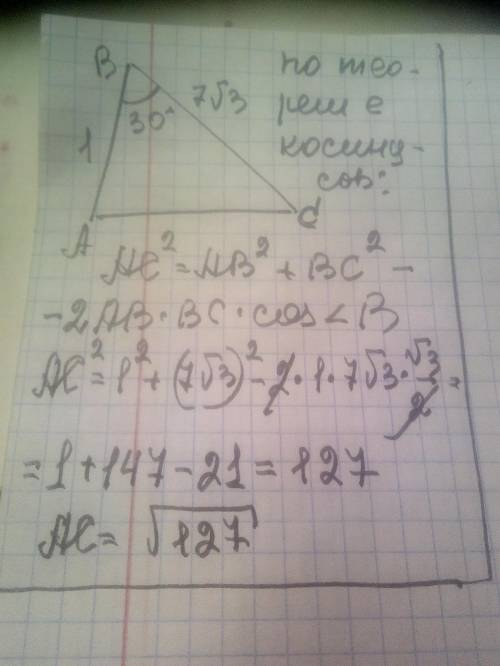 B
7√3
30°
1
A
C
по тео-
реме
косину-
сов:
AC² = AB² + BC² -
- 2AB · BC · cos < B
AC² = 1² + (7√3)² - 2 · 1 · 7√3 · √3/2 =
= 1 + 147 - 21 = 127
AC = √127